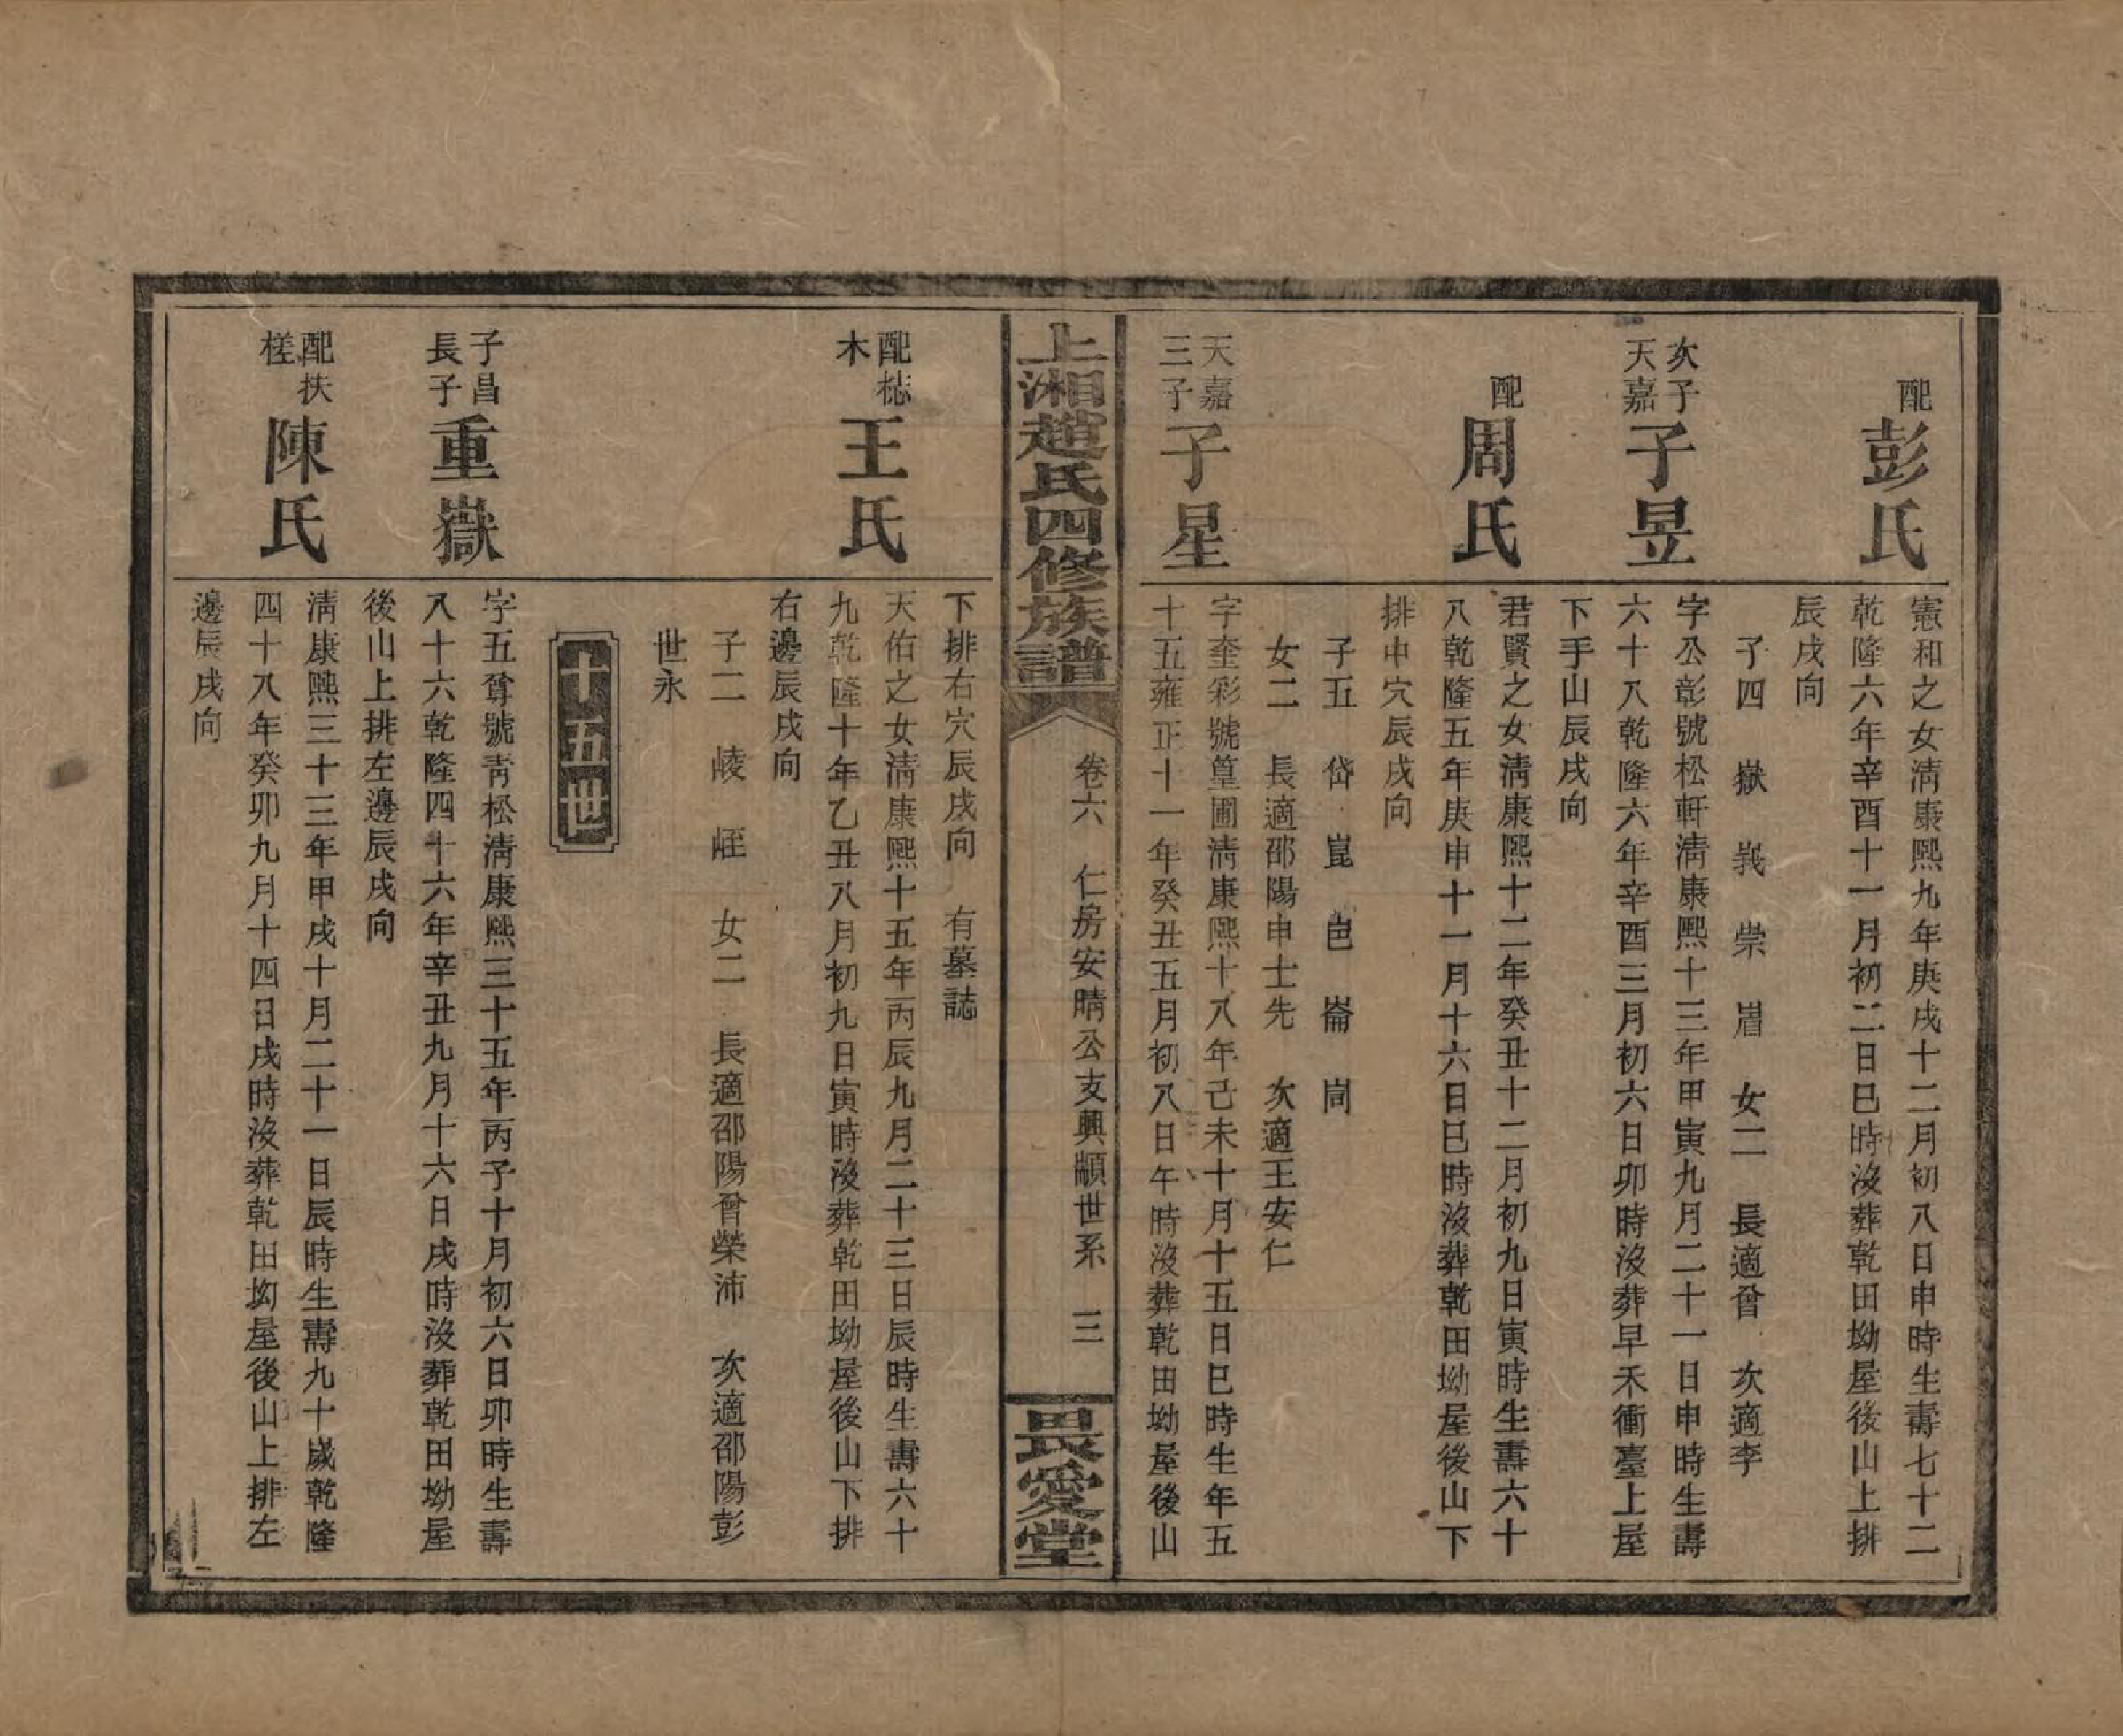 配
彭氏
憲和之女淸康熙九年庚戌十二月初八日申時生壽七十二
乾隆六年辛酉十一月初二日巳時沒葬乾田坳屋後山上排
辰戌向
子四 嶽 峩 崇 㟭 女二 長適曾 次適李
次子
天嘉
子昱
字公彰號松軒淸康熙十三年甲寅九月二十一日申時生壽
六十八乾隆六年辛酉三月初六日卯時沒葬早禾衝臺上屋
下手山辰戌向
配
周氏
君賢之女淸康熙十二年癸丑十二月初九日寅時生壽六十
八乾隆五年庚申十一月十六日巳時沒葬乾田坳屋後山下
排中穴辰戌向
子五 岱 崑 岜 崙 峝
女二 長適邵陽申士先 次適王安仁
天嘉
三子
子星
字奎彩號篁圃淸康熙十八年己未十月十五日巳時生年五
十五雍正十一年癸丑五月初八日午時沒葬乾田坳屋後山
上湘趙氏四修族譜
卷六 仁房安晴公支興顓世系 三
畏愛堂
下排右穴辰戌向 有墓誌
配梽
木
王氏
天佑之女淸康熙十五年丙辰九月二十三日辰時生壽六十
九乾隆十年乙丑八月初九日寅時沒葬乾田坳屋後山下排
右邊辰戌向
子二 崚 峌 女二 長適邵陽曾榮沛 次適邵陽彭
世永
十五世
子昌
長子
重嶽
字五尊號靑松淸康熙三十五年丙子十月初六日卯時生壽
八十六乾隆四十六年辛丑九月十六日戌時沒葬乾田坳屋
後山上排左邊辰戌向
配扶
槎
陳氏
淸康熙三十三年甲戌十月二十一日辰時生壽九十歲乾隆
四十八年癸卯九月十四日戌時沒葬乾田坳屋後山上排左
邊辰戌向